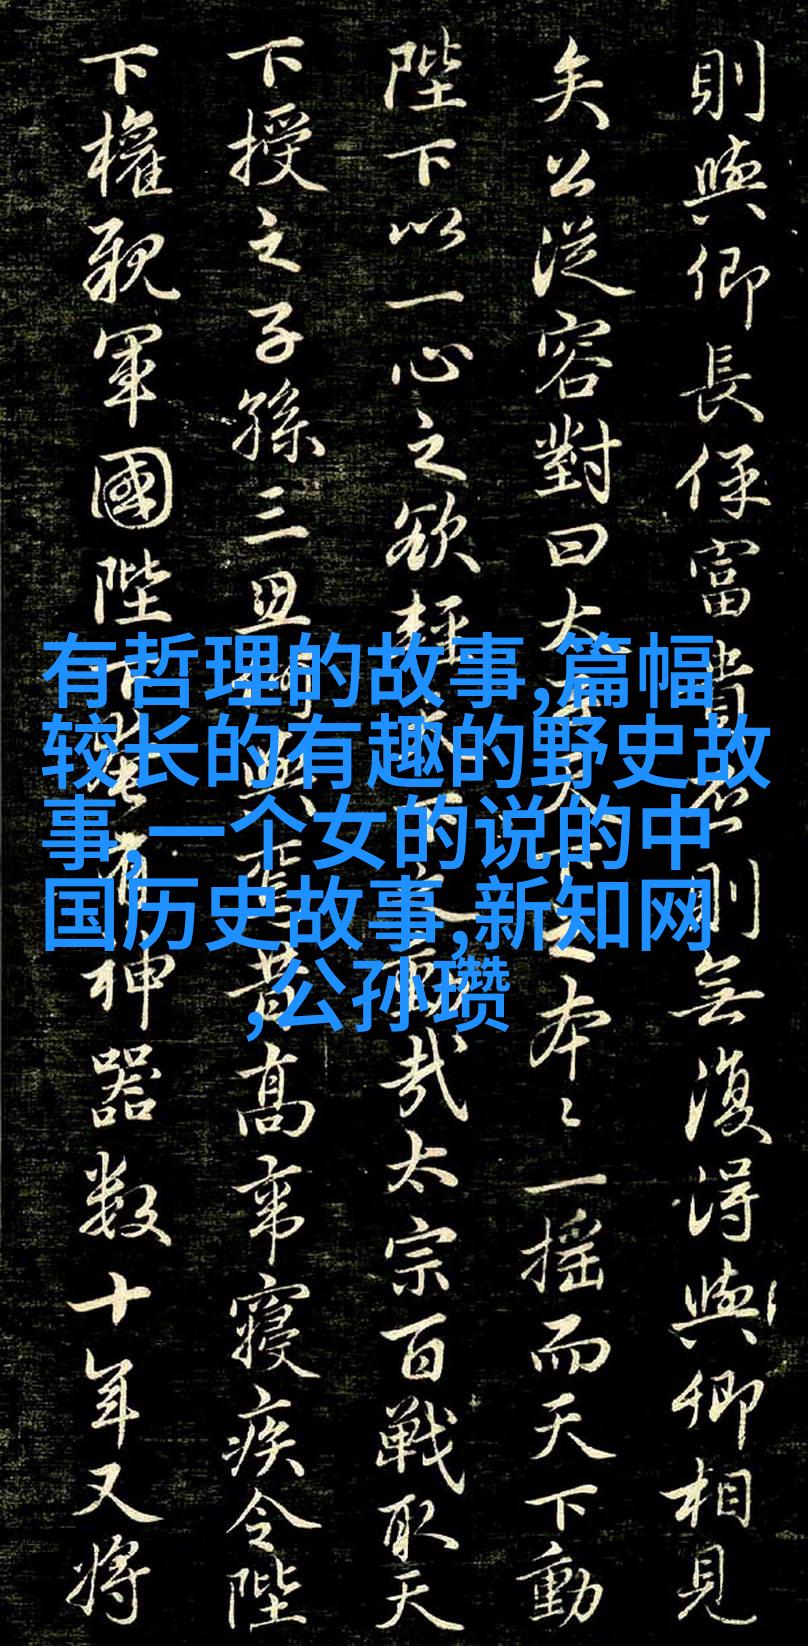 有哲理的故事,篇幅
较长的有趣的野史故
事,一个女的说的中
国历史故事,新知网
,公孙瓒
則與卿長保富貴則無復得與卿相見
矣公從容對曰太天下之本〻一搖而天下動
陛下以一心之欲輕天下之動哉太宗百戰取天
下授之子孫三思與焉昔高宗寢疾令陛
下權親軍國陛下有神器數十年又將